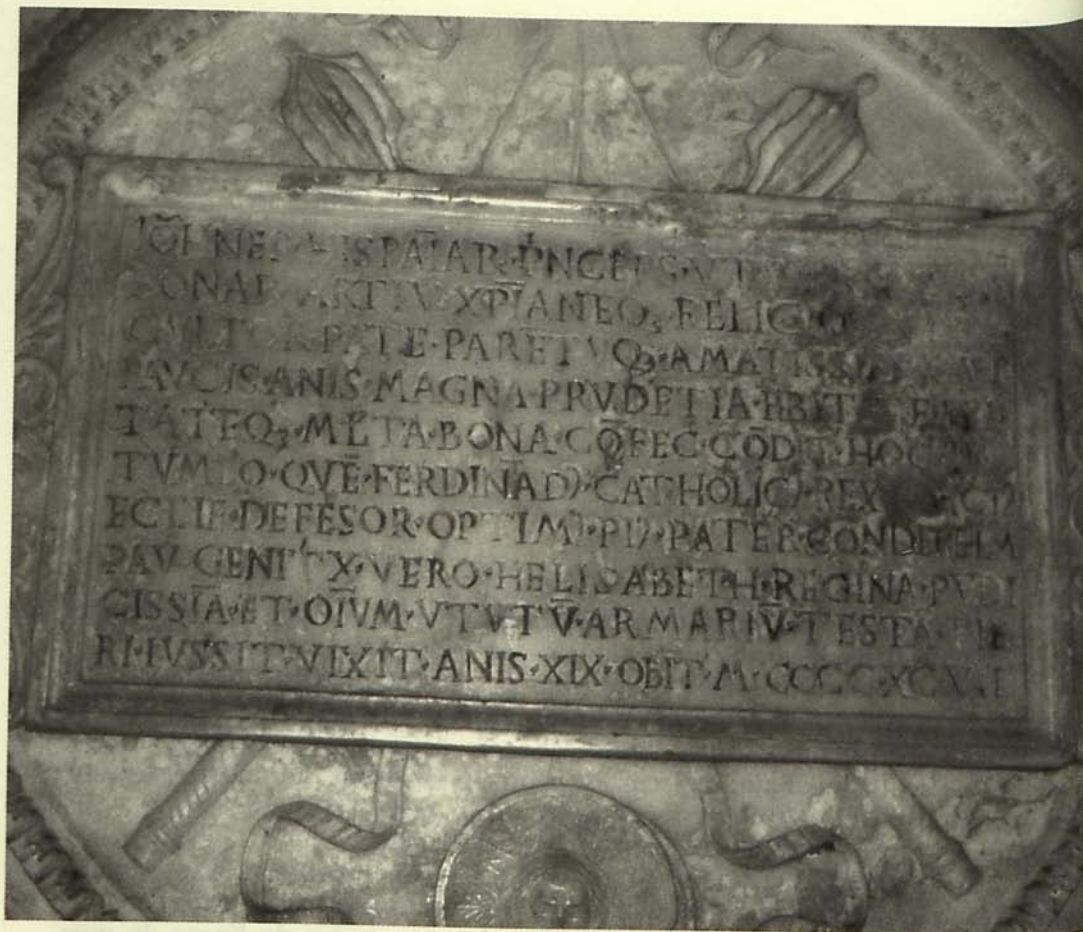 IOH̄NES HISPAĪAR· P̄NCEPS·
BONAR ARTIV̄ XP̄IANEQꝫ·RELIGIO
CVLTOR·PATE·PARETVQꝫ·AMATISS
PAVCIS·ANIS·MAGNA·PRVDETIA·
TATEQꝫ·MLTA·BONA·CŌFEC·CŌDIT·HOC
TVMLO·QVĒ·FERDINĀDꝰ·CATHOLICꝰ·REX
ECLIE·DEFESOR·OPTIMꝰ·PIꝰ·PATER·CONDI
PAV·GENITX·VERO·HELISABETH·REGINA·PVDI
CISSĪA·ET·OĪVM·VTVTV̄·ARMARIV̄·TESTA·FIE
RI·IVSSIT·VIXIT·ANIS·XIX·OBIT·M·CCCC·XCVII